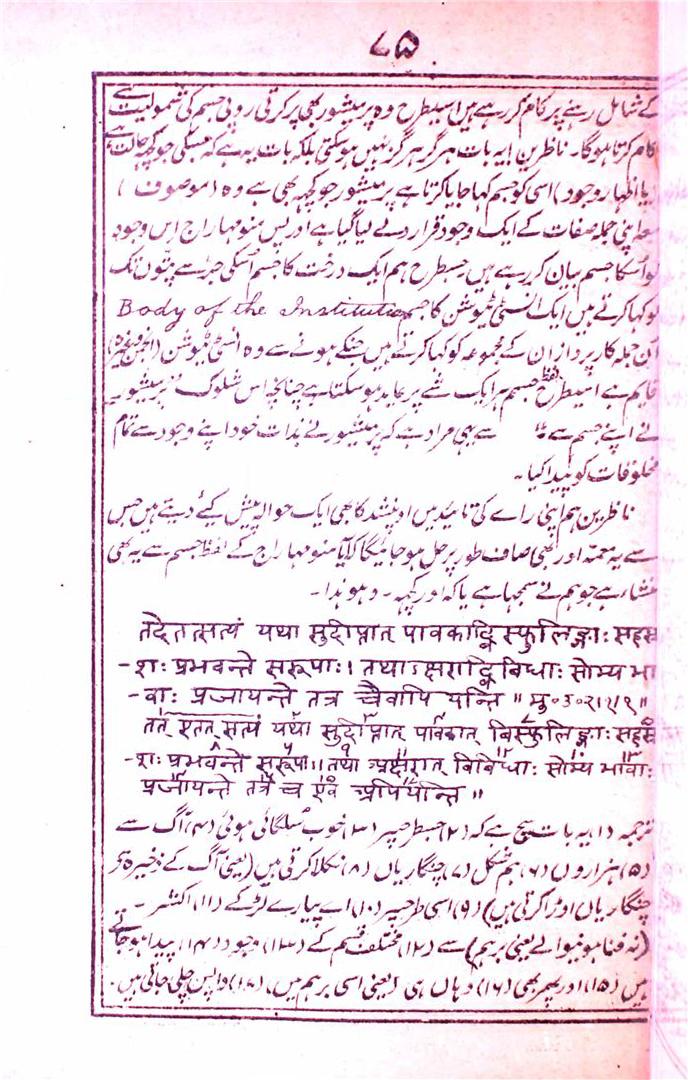 ۸۵
کے شامل رہنے پر کام کر رہے ہیں اسیطرح وہ پرمیشور بھی پرکرتی روپی جسم کی شمولیت سے
کام کرتا ہوگا۔ ناظرین! یہ بات ہرگز ہرگز نہیں ہوسکتی بلکہ بات یہ ہے کہ جسکی جو کچھ حالت ہے
(یا اظہار وجود) اسی کو جسم کہا جایا کرتا ہے پرمیشور جو کچھ بھی ہے وہ (موصوف)
معہ اپنی جملہ صفات کے ایک وجود قرار دے لیا گیا ہے اور بس منو مہاراج اس وجود
کو اُسکا جسم بیان کر رہے ہیں جسطرح ہم ایک درخت کا جسم اُسکی جڑ سے پتوں تک
کو کہا کرتے ہیں ایک انسٹی ٹیوشن کا جسم Body of the Institution
اُن جملہ کارپردازان کے مجموعہ کو کہا کرتے ہیں جنکے ہونے سے وہ انسٹی ٹیوشن (انجمن وغیرہ)
قایم ہے اسیطرح لفظ جسم ہر ایک شے پر عاید ہو سکتا ہے چنانچہ اس شلوک "پرمیشور
نے اپنے جسم سے" سے یہی مراد ہے کہ پرمیشور نے بذات خود اپنے وجود سے تمام
مخلوقات کو پیدا کیا۔
ناظرین ہم اپنی راے کی تائید میں اوپنشد کا بھی ایک حوالہ پیش کیے دیتے ہیں جس
سے یہ معمہ اور بھی صاف طور پر حل ہو جائیگا کہ آیا منو مہاراج کے لفظ جسم سے یہ بھی
منشاء ہے جو ہم نے سمجہا ہے یا کہ اور کچہہ۔ وہوہذا۔
तदेतत्सत्यं यथा सुदीप्तात् पावकाद्विस्फुलिङ्गाः सहस्र
-शः प्रभवन्ते सरूपाः। तथाऽक्षराद्विविधाः सोम्य भा
-वाः प्रजायन्ते तत्र चैवापि यन्ति ॥ मु॰ उ॰ २।१।१॥
तत् एतत् सत्यं यथा सुदीप्तात् पावकात् विस्फुलिङ्गाः सहस्र
-शः प्रभवन्ते सरूपाः। तथा अक्षरात् विविधाः सोम्य भावाः
प्रजायन्ते तत्र च एव अपियन्ति ॥
ترجمہ (۱) یہ بات سچ ہے کہ (۲) جسطرحپر (۳) خوب سُلگائی ہوئی (۴) آگ سے
(۵) ہزاروں (۶) ہم شکل (۷) چنگاریاں (۸) نکلا کرتی ہیں (یعنی آگ کے ذخیرہ سے
چنگاریاں اوڑا کرتی ہیں) (۹) اسی طرحپر (۱۰) اے پیارے لڑکے (۱۱) اکشر۔
(نہ فنا ہونیوالے یعنی برہم) سے (۱۲) مختلف قسم کے (۱۳) وجود (۱۴) پیدا ہو جاتے
ہیں (۱۵) اور پھر بھی (۱۶) وہاں ہی (یعنی اسی برہم میں) (۱۷) واپس چلی جاتی ہیں۔